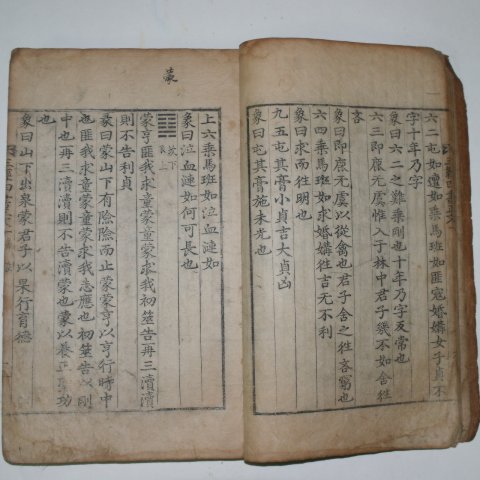 六二屯如邅如乘馬班如匪寇婚媾女子貞不
字十年乃字
象曰六二之難乘剛也十年乃字反常也
六三即鹿无虞惟入于林中君子幾不如舍往
吝
象曰即鹿无虞以從禽也君子舍之往吝窮也
六四乘馬班如求婚媾往吉无不利
象曰求而往明也
九五屯其膏小貞吉大貞凶
象曰屯其膏施未光也
蒙
上六乘馬班如泣血漣如
象曰泣血漣如何可長也
䷃
坎下
艮上
蒙亨匪我求童蒙童蒙求我初筮告再三瀆瀆
則不告利貞
彖曰蒙山下有險險而止蒙蒙亨以亨行時中
也匪我求童蒙童蒙求我志應也初筮告以剛
中也再三瀆瀆則不告瀆蒙也蒙以養正聖功
也
象曰山下出泉蒙君子以果行育德